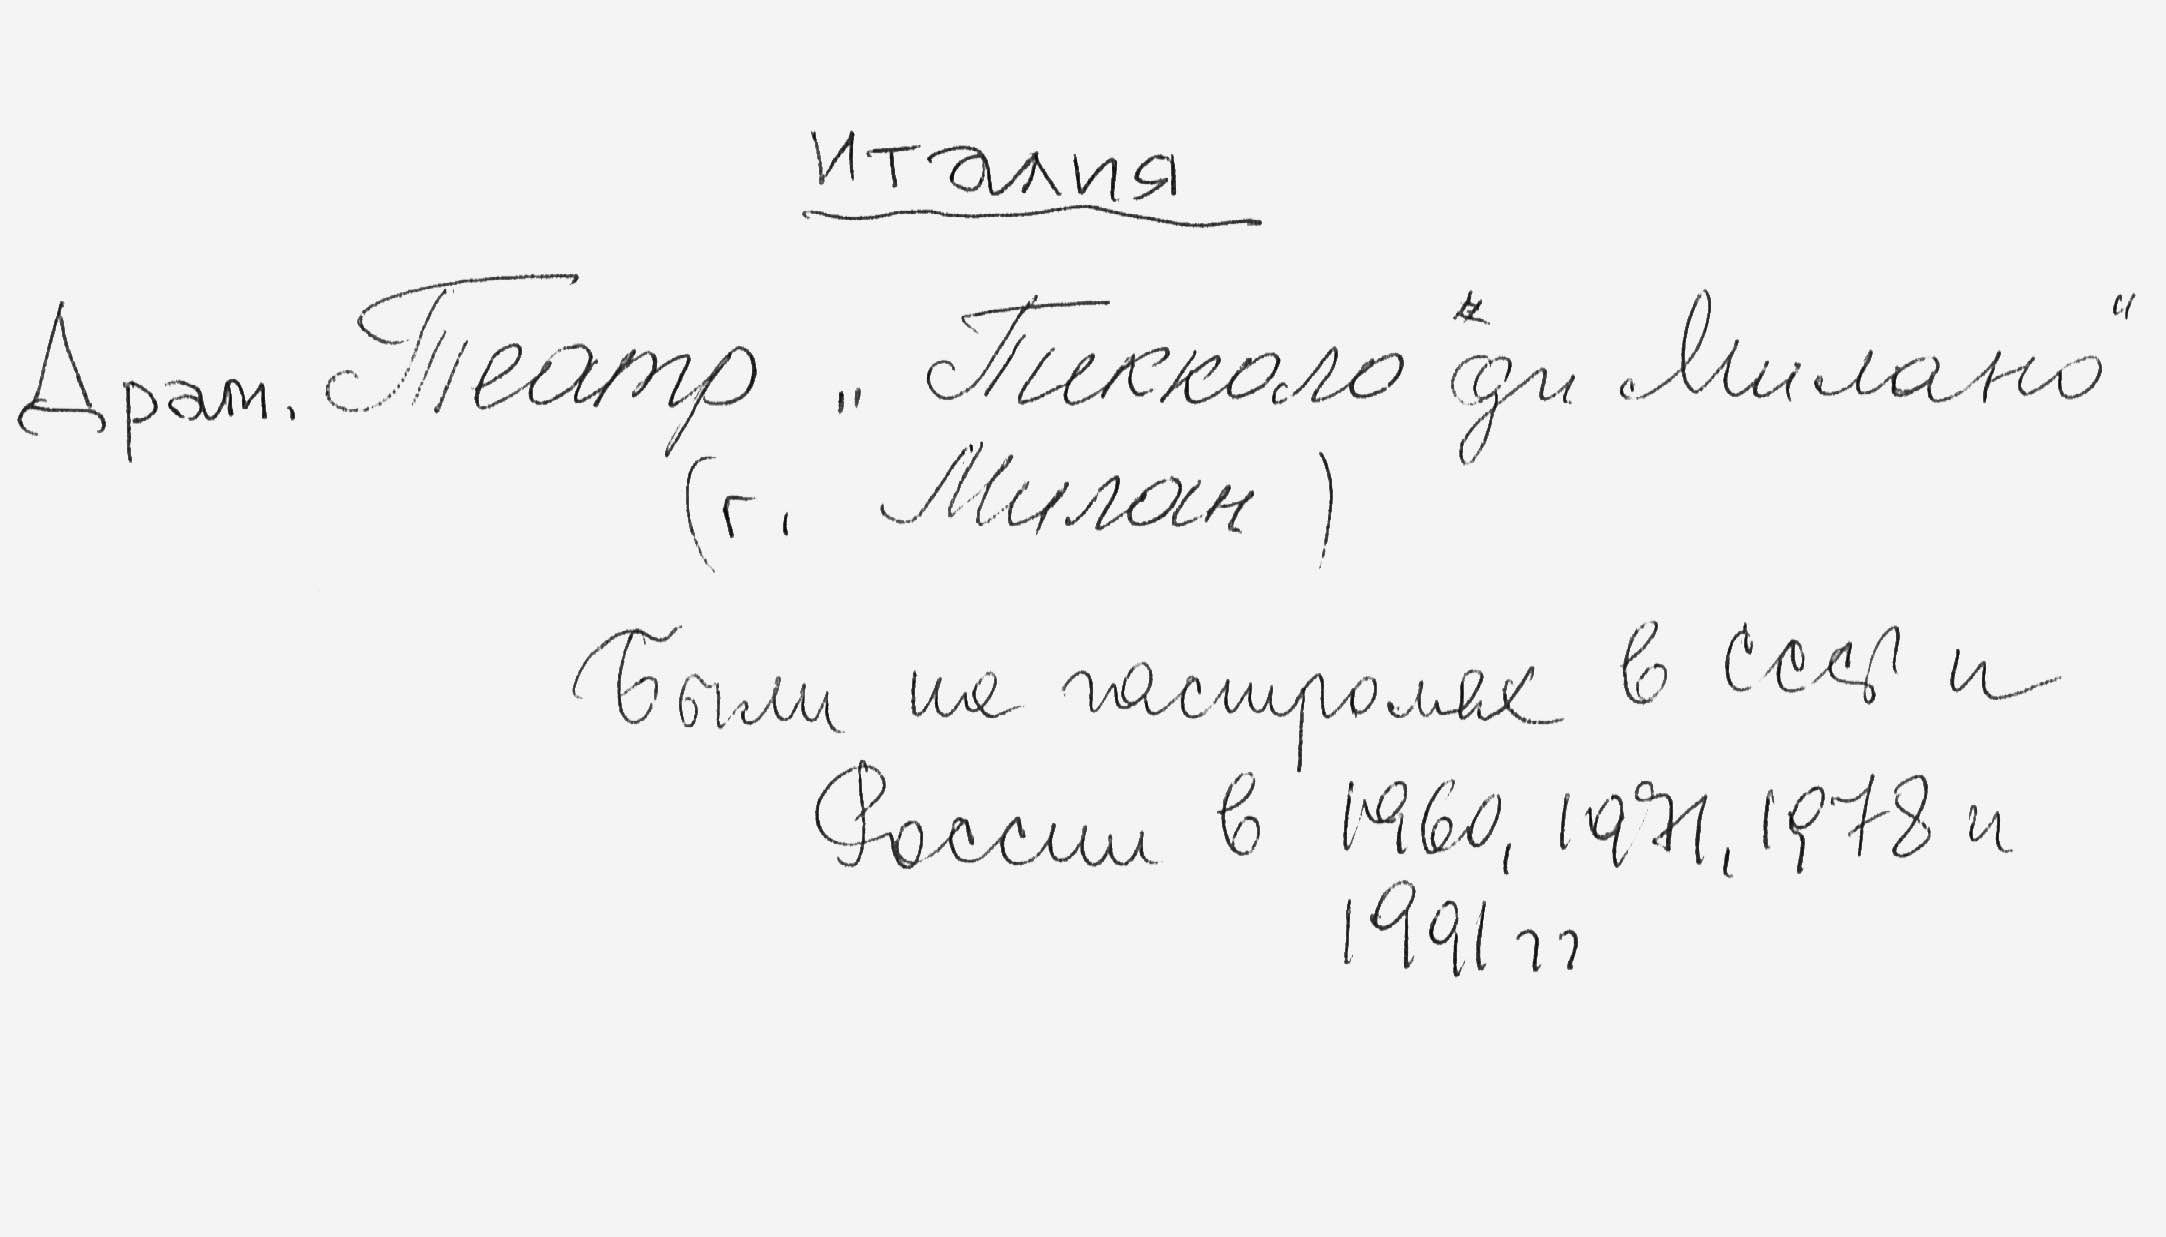 Италия
Драм. Театр „Пикколо ди Милано"
(г. Милан)
Были на гастролях в СССР и
России в 1960, 1971, 1978 и
1991 гг